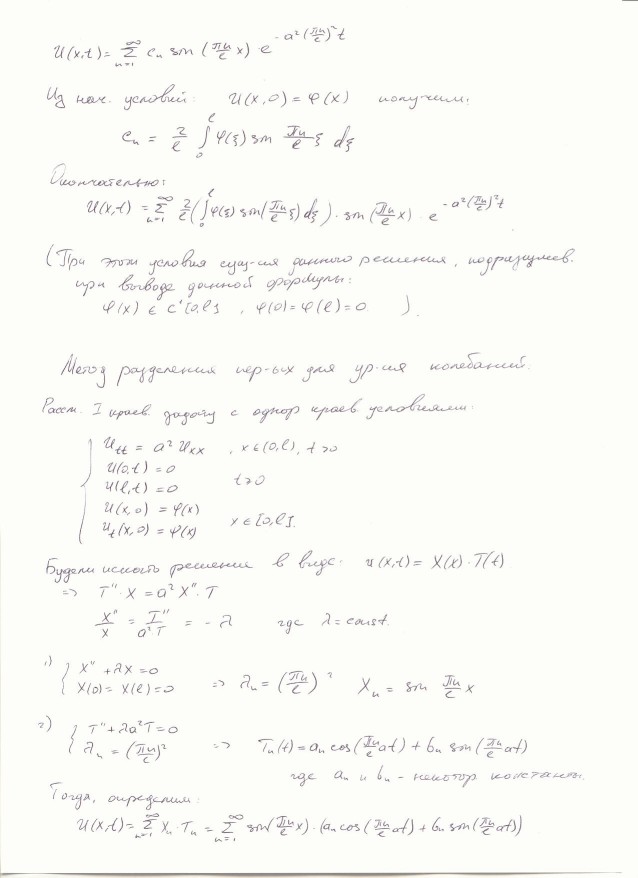 U(x,t) = ∑_{n=1}^{∞} c_n sin (πn/l x) · e^{-a²(πn/l)² t}
Из нач. условий: U(x,0) = φ(x) получим:
c_n = 2/l ∫_0^l φ(ξ) sin πn/l ξ dξ
Окончательно:
U(x,t) = ∑_{n=1}^{∞} 2/l (∫_0^l φ(ξ) sin(πn/l ξ) dξ) · sin(πn/l x) · e^{-a²(πn/l)² t}
(При этом условия сущ-ия данного решения, подразумев.
при выводе данной формулы:
φ(x) ∈ C¹[0,l], φ(0) = φ(l) = 0 ).
Метод разделения пер-ых для ур-ия колебаний.
Рассм. I краев. задачу с однор краев. условиями:
{ U_tt = a² U_xx , x ∈ (0,l), t > 0
U(0,t) = 0
U(l,t) = 0 t > 0
U(x,0) = φ(x)
U_t(x,0) = ψ(x) x ∈ [0,l].
Будем искать решение в виде: u(x,t) = X(x) · T(t)
=> T'' · X = a² X'' · T
X''/X = T''/(a² T) = - λ где λ = const.
1) { X'' + λX = 0
X(0) = X(l) = 0 => λ_n = (πn/l)² X_n = sin πn/l x
2) { T'' + λa²T = 0
λ_n = (πn/l)² => T_n(t) = a_n cos(πn/l at) + b_n sin(πn/l at)
где a_n и b_n - некотор константы.
Тогда, определим:
U(x,t) = ∑_{n=1}^{∞} X_n · T_n = ∑_{n=1}^{∞} sin(πn/l x) · (a_n cos(πn/l at) + b_n sin(πn/l at))